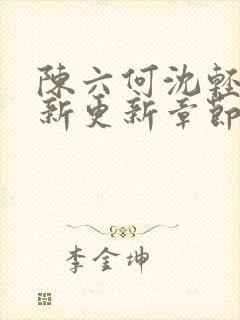 陳六何沈輕
新更新章節
李金坤